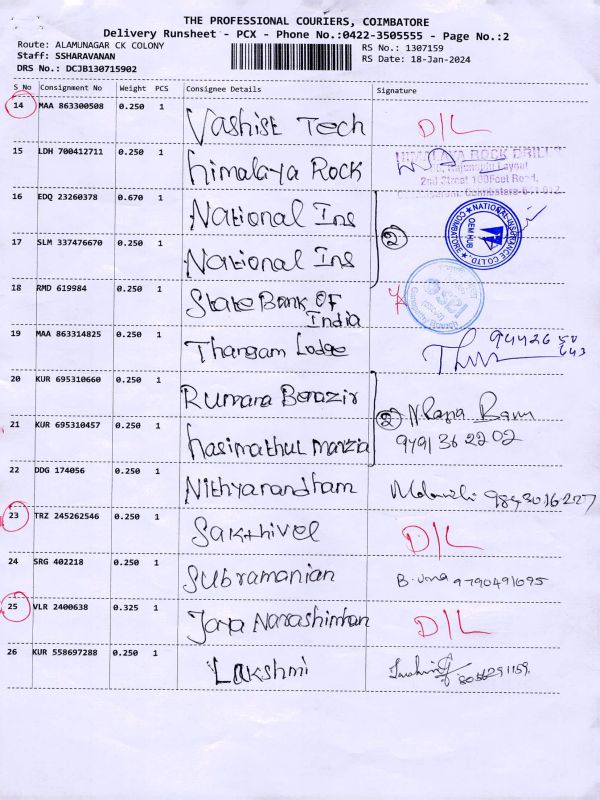 THE PROFESSIONAL COURIERS, COIMBATORE
Delivery Runsheet - PCX - Phone No.:0422-3505555 - Page No.:2
Route: ALAMUNAGAR CK COLONY
RS No.: 1307159
Staff: SSHARAVANAN
RS Date: 18-Jan-2024
DRS No.: DCJB130715902
S No Consignment No Weight PCS Consignee Details Signature
14 MAA 863300508 0.250 1 Vashist Tech D/L
15 LDH 700412711 0.250 1 himalaya Rock
HIMALAYA ROCK DRILL
Layout
2nd Street 100Feet Road,
16 EDQ 23260378 0.670 1 National Ins
NATIONAL INSURANCE CO LTD. COIMBATORE
17 SLM 337476670 0.250 1 National Ins
2
18 RMD 619984 0.250 1 State Bank OF
India
SBI
19 MAA 863314825 0.250 1 Thangam Lodge
20 KUR 695310660 0.250 1 Rumana Benazir
2
21 KUR 695310457 0.250 1 hasimathul manzia 9491362202
22 DDG 174056 0.250 1 Nithyanandham
23 TRZ 245262546 0.250 1 Sakthivel D/L
24 SRG 402218 0.250 1 Subramanian B. uma 9790491695
25 VLR 2400638 0.325 1 Jaya Narashimhan D/L
26 KUR 558697288 0.250 1 Lakshmi